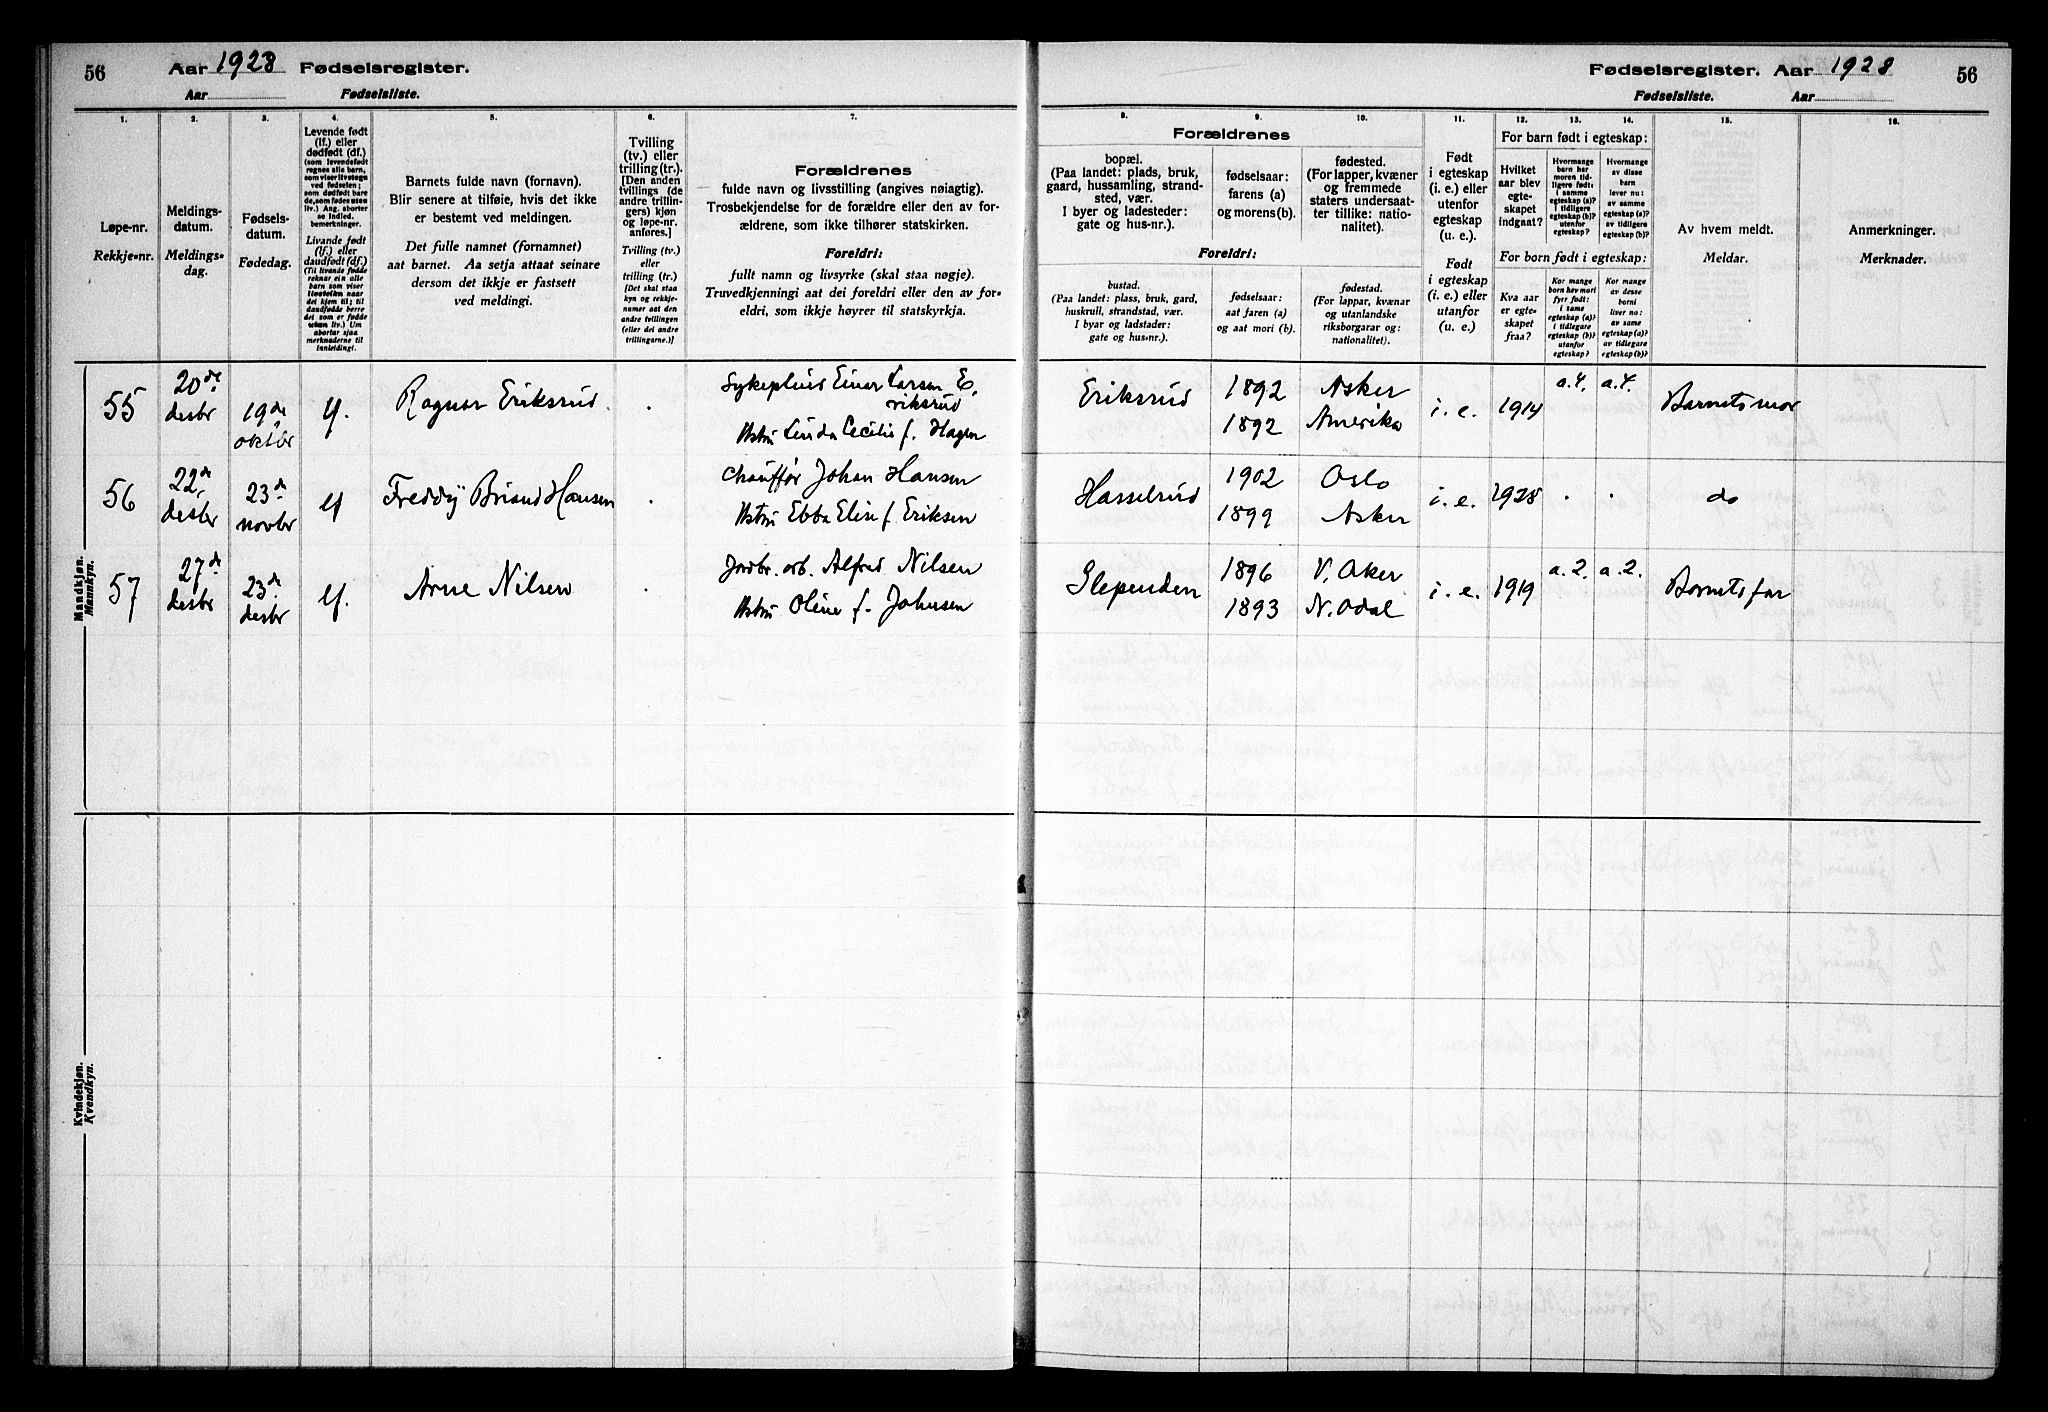 56 Aar 1928 Fødselsregister.
Aar Fødselsliste.
Fødselsregister. Aar 1928 56
Fødselsliste. Aar
1.
Løpe-nr.
Rekkje-nr.
2.
Meldings-
datum.
Meldings-
dag.
3.
Fødsels-
datum.
Fødedag.
4.
Levende født
(lf.) eller
dødfødt (df.)
(som levendefødt
regnes alle barn,
som viser livstegn
ved fødselen;
som dødfødt bare
de, som fødes uten
liv.) Ang. aborter
se indled.
bemerkninger.
Livande født
(lf.) eller
daudfødt (df.)
(Til livande fødde
reknar ein alle
barn som viser
livsteikn naar
dei kjem til; til
daudfødde berre
dei som er fødde
utan liv.) Um
abortar sjaa
merknaderne til
innleiding!.
5.
Barnets fulde navn (fornavn).
Blir senere at tilføie, hvis det ikke
er bestemt ved meldingen.
Det fulle namnet (fornamnet)
aat barnet. Aa setja attaat seinare
dersom det ikkje er fastsett
ved meldingi.
6.
Tvilling
(tv.) eller
trilling (tr.).
[Den anden
tvillings (de
andre trillin-
gers) kjøn
og løpe-nr.
anføres.]
Tvilling (tv.)
eller
trilling (tr.)
[Det skal staa
kyn og rekkje-
numer aat den
andre tvillingen
(eller dei andre
trillingarne.)]
7.
Forældrenes
fulde navn og livsstilling (angives nøiagtig).
Trosbekjendelse for de forældre eller den av for-
ældrene, som ikke tilhører statskirken.
Foreldri:
fullt namn og livsyrke (skal staa nøgje).
Truvedkjenningi aat dei foreldri eller den av for-
eldri, som ikkje høyrer til statskyrkja.
8. 9. 10.
Forældrenes
bopæl.
(Paa landet: plads, bruk,
gaard, hussamling, strand-
sted, vær.
I byer og ladesteder:
gate og hus-nr.).
fødselsaar:
farens (a)
og morens (b).
fødested.
(For lapper, kvæner
og fremmede
staters undersaat-
ter tillike: natio-
nalitet).
Foreldri:
bustad.
(Paa landet: plass, bruk, gard,
huskrull, strandstad, vær.
I byar og ladstader:
gate og hus-nr.).
fødselsaar:
aat faren (a)
og aat mori (b).
fødestad.
(For lappar, kvænar
og utanlandske
riksborgarar og:
nationalitet).
11.
Født
i egteskap
(i. e.) eller
utenfor
egteskap
(u. e.).
Født
i egteskap
(i. e.) eller
utanfor
egteskap
(u. e.).
12. 13. 14.
For barn født i egteskap:
Hvilket
aar blev
egte-
skapet
indgaat?
Hvormange
barn har
moren tid-
ligere født:
i samme
egteskap (a)?
i tidligere
egteskap (b)?
utenfor
egteskap?
Hvormange
av disse
barn
lever nu:
av samme
egteskap (a)?
av tidligere
egteskap (b)?
For born født i egteskap:
Kva aar
er egte-
skapet
fraa?
Kor mange
born hev mori
fyrr født:
i same
egteskap (a)?
i tidlegare
egteskap (b)?
utanfor
egteskap?
Kor mange
av desse
borni
liver no:
av same
egteskap (a)?
av tidlegare
egteskap (b)?
15.
Av hvem meldt.
Meldar.
16.
Anmerkninger.
Merknader.
Mandkjøn.
Mannkyn.
55 20de desbr 19de oktbr lf. Ragnar Eriksrud
Einar Larsen E-
riksrud
Hustru Linda Cecilie f. Hagen
Eriksrud 1892 Asker i. e. 1914 a.4. a.4. Barnets mor
1892 Amerika
56 22de desbr 23de novbr lf Freddy Briand Hansen
Chauffør Johan Hansen
Hustru Ebba Elise f. Eriksen
Hasselrud 1902 Oslo i. e. 1928 . . do
1899 Asker
57 27de desbr 23de desbr lf. Arne Nilsen
Jordbr. arb. Alfred Nilsen
Hustru Oline f. Johnsen
Slependen 1896 V. Aker i. e. 1919 a.2. a.2. Barnets far
1893 N. Odal
Kvindekjøn.
Kvendkyn.